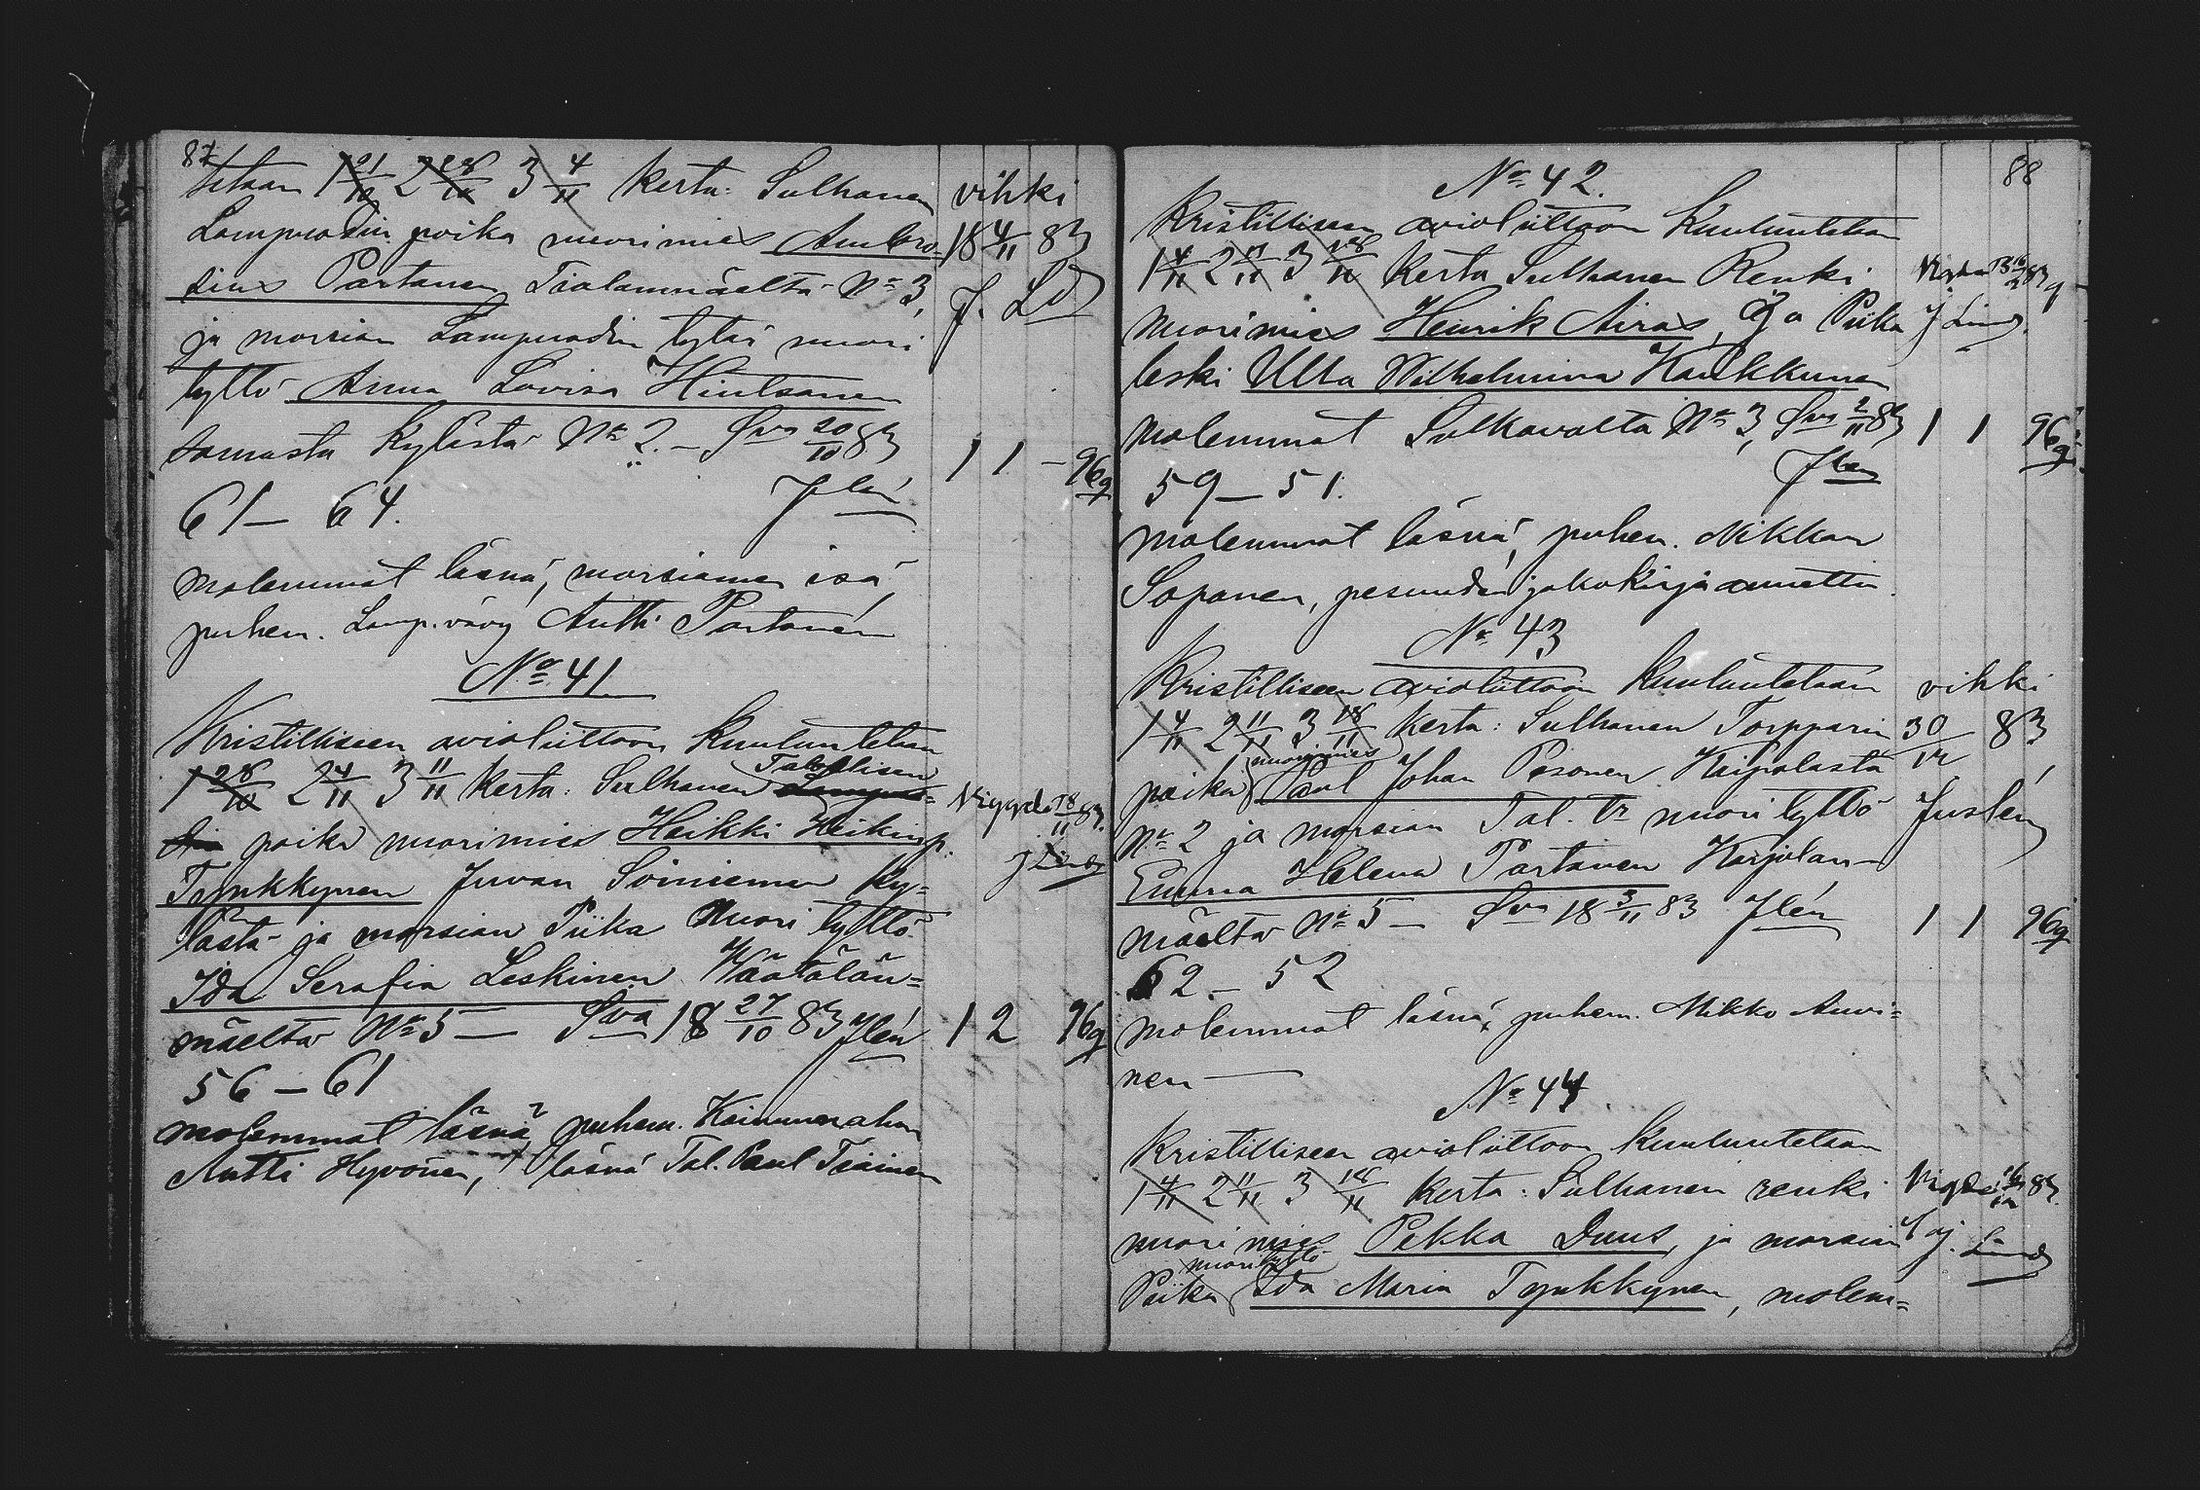 87
tetaan 1 21/10 2 28/10 3 4/11 kerta: Sulhanen
Lampuodin poika nuorimies Ambro-
sius Partanen Tiolanmäeltä No 3
ja morsian Lampuodin tytär nuori
tyttö Anna Lovisa Hintsanen
samasta kylästä No 2. — Sva 20/10 83
61 — 64. Jlén
molemmat läsnä, morsiamen isä,
puhem. Lamp. vävy Antti Partanen
vihki
18 4/11 83
J. Ld
1 1 — 96
No 41.
Kristilliseen avioliittoon Kuulutetaan
1 28/10 2 4/11 3 11/11 kerta: Sulhanen Talollisen
poika nuorimies Heikki Heikinp.
Tynkkynen Juvan Soiniemen ky=
lästä ja morsian Piika Nuori tyttö
Ida Serafia Leskinen Wäätälän=
mäeltä No 5 — Sva 18 27/10 83 Jlén
56 — 61
molemmat läsnä, puhem.
Antti Hyvönen, läsnä Tal. Paul Tiainen
Vigde 18/11 83.
J Lind
1 2 96
88
No 42.
Kristilliseen avioliittoon Kuulutetaan
1 4/11 2 11/11 3 18/11 kerta Sulhanen Renki
nuorimies Henrik Airas, Ja Piika
leski Ulla Wilhelmina Kaukkunen
molemmat Sulkavalta No 3, Sva 2/11 83
59 — 51. Jlén
molemmat läsnä, puhem. Mikko
Soponen, pesundenjakokirja annettu.
J Lind
1 1 96
No 43
Kristilliseen avioliittoon Kuulutetaan
1 4/11 2 11/11 3 18/11 kerta: Sulhanen Torpparin
poika nuorimies Paul Johan Pesonen Kaipolasta
No 2 ja morsian Tal. tr nuori tyttö
Emma Helena Partanen Karjolan-
mäeltä No 5 — Sva 18 3/11 83 Jlén
62 — 52
molemmat läsnä, puhem. Mikko Auvi=
nen —
vihki
30/12 83
Juslén
1 1 96
No 44.
Kristilliseen avioliittoon Kuulutetaan
1 4/11 2 11/11 3 18/11 kerta: Sulhanen renki
nuorimies Pekka Duus, ja morsian
Piika nuori tyttö Ida Maria Tynkkynen, molem=
J. Lind